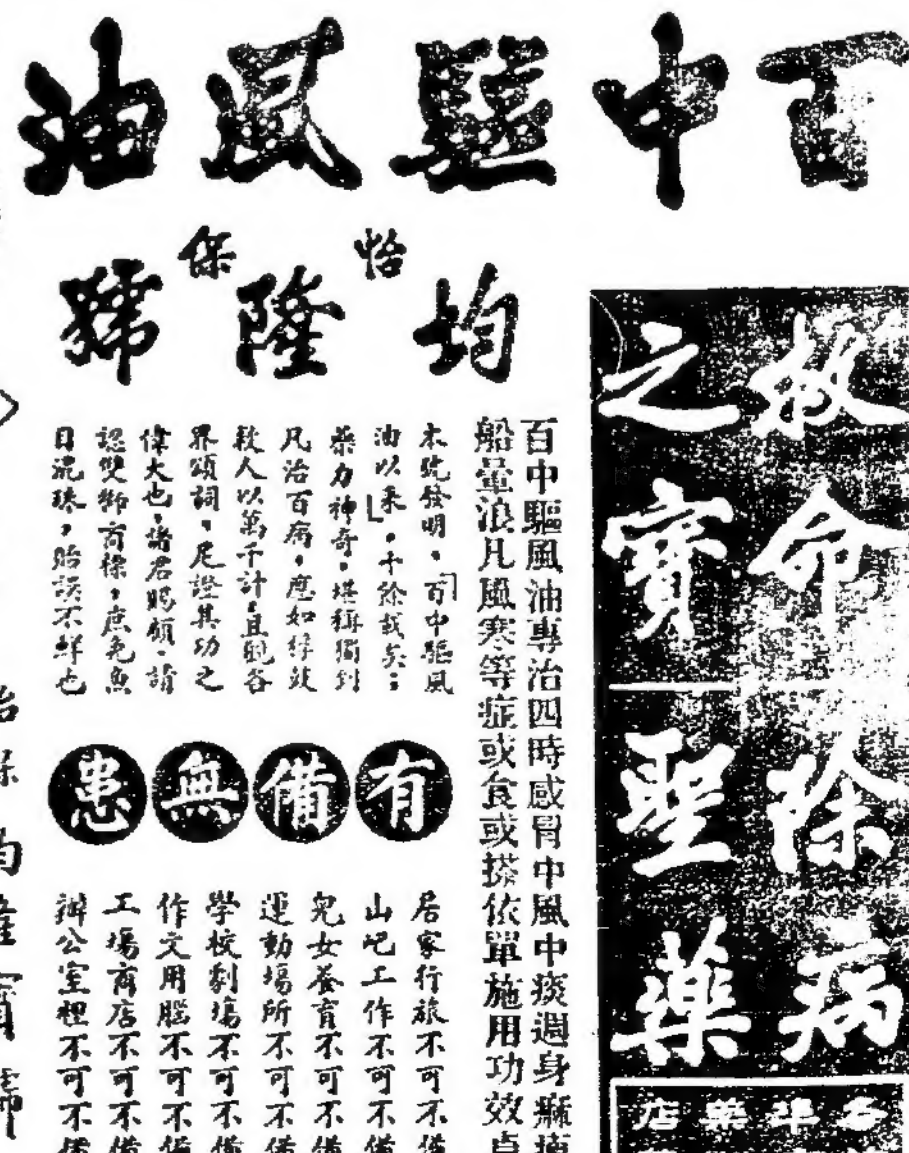 百中驅風油
怡保
均隆號
救命除病
之寶聖藥
百中驅風油專治四時感冒中風中痰週身痲
船暈浪凡風寒等症或食或搽依單施用功效
本號發明。「百中驅風
油以來」。十餘載矣:
藥力神奇。堪稱獨到
凡治百病。應如桴鼓
救人以萬千計。且
各
界頌詞。足證其功之
偉大也。諸君賜顧。請
認雙獅商標,庶免魚
目混珠,貽誤不鮮也
有備無患
居家行旅不可不備
山吧工作不可不備
兒女養育不可不備
運動場所不可不備
學校劇場不可不備
作文用腦不可不備
工場商店不可不備
辦公室裡不可不備
店藥